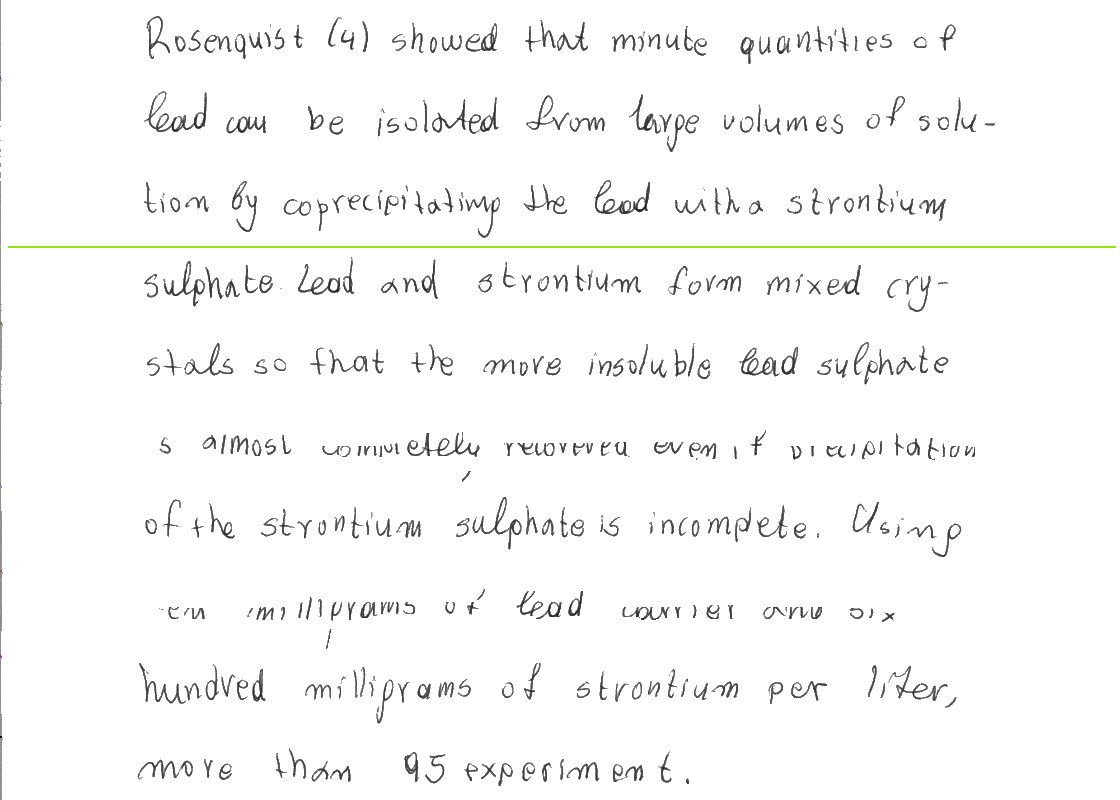 Rosenquist (4) showed that minute quantities of
lead can be isolated from large volumes of solu-
tion by coprecipitating the lead with a strontium
sulphate. Lead and strontium form mixed cry-
stals so that the more insoluble lead sulphate
s almost completely recovered even if precipitation
of the strontium sulphate is incomplete. Using
en milligrams of lead carrier and six
hundred milligrams of strontium per liter,
more than 95 experiment.